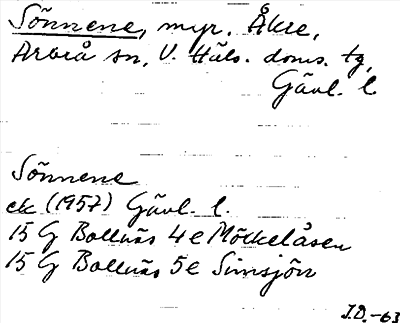 Sönnene, myr. Åkre,
Arbrå sn, V. Häls. doms. tg,
Gävl. l.
Sönnene
ek (1957) Gävl. l.
15 G Bollnäs 4 e Möckelåsen
15 G Bollnäs 5 e Simsjön
J.D.-63